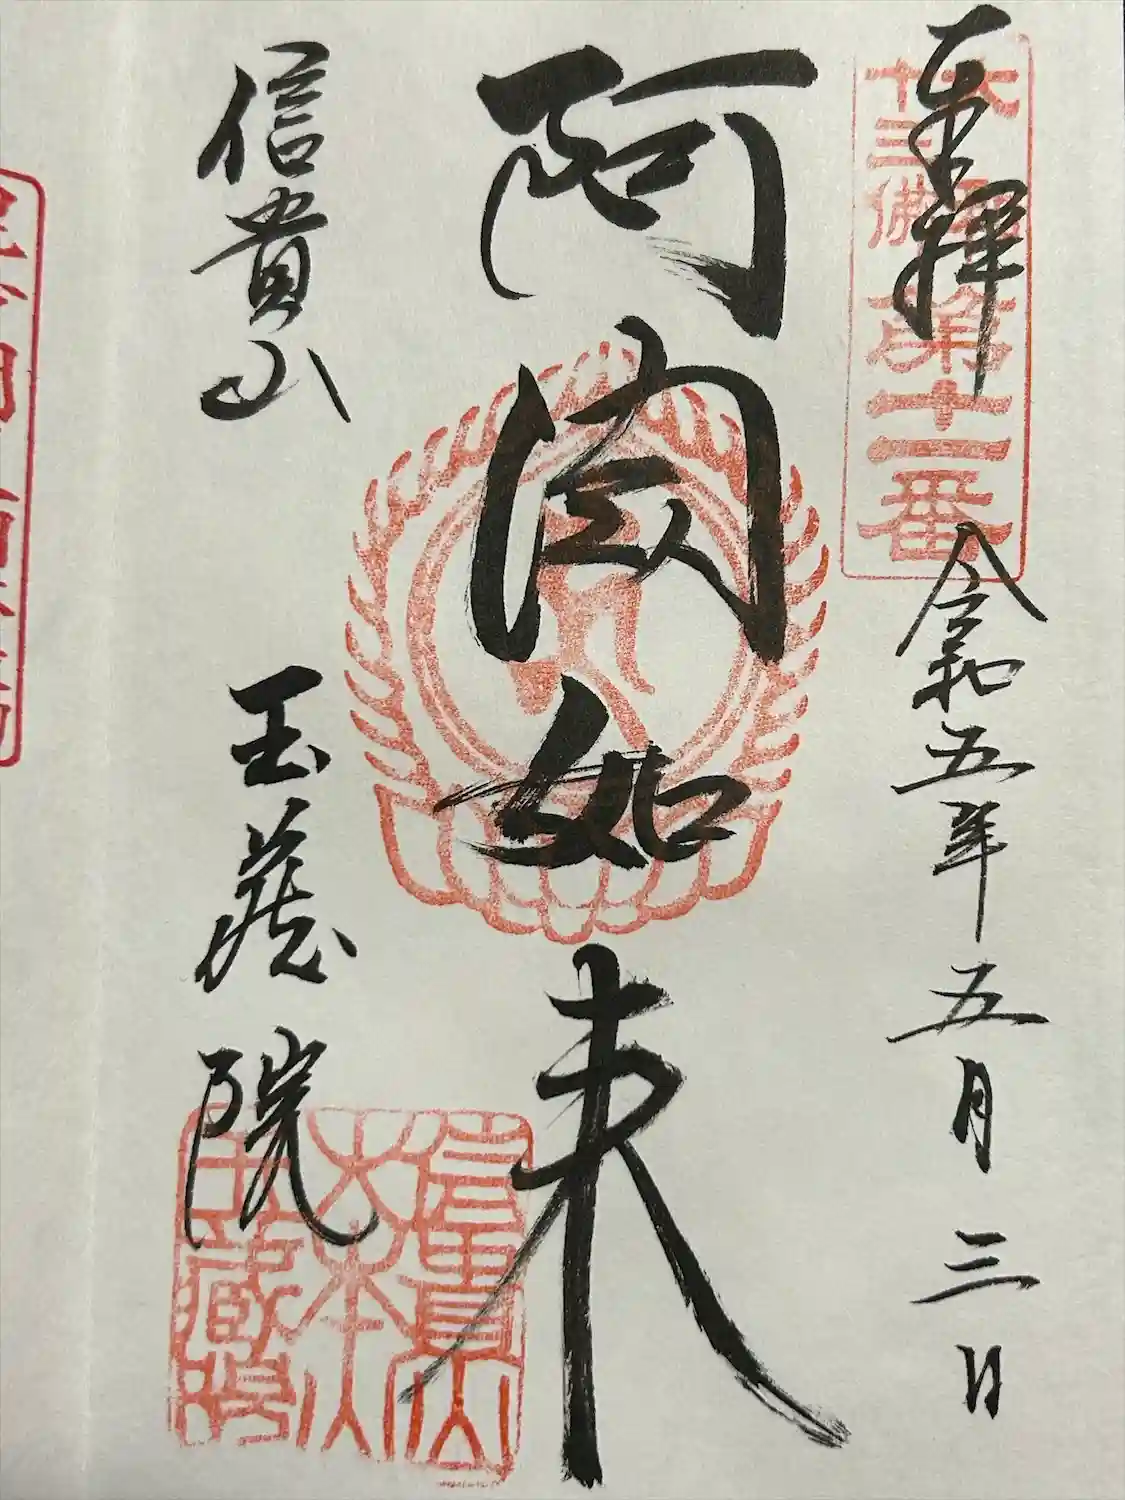 奉拝
大和
十三佛
第十二番
令和五年五月三日
阿閦如来
信貴山
玉蔵院
信貴山
大本山
玉蔵院